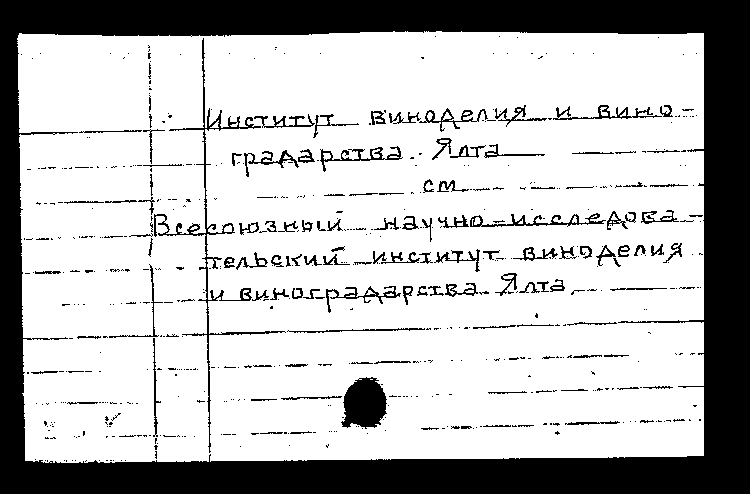 Институт виноделия и вино-
градарства. Ялта
см.
Всесоюзный научно-исследова-
тельский институт виноделия
и виноградарства. Ялта.